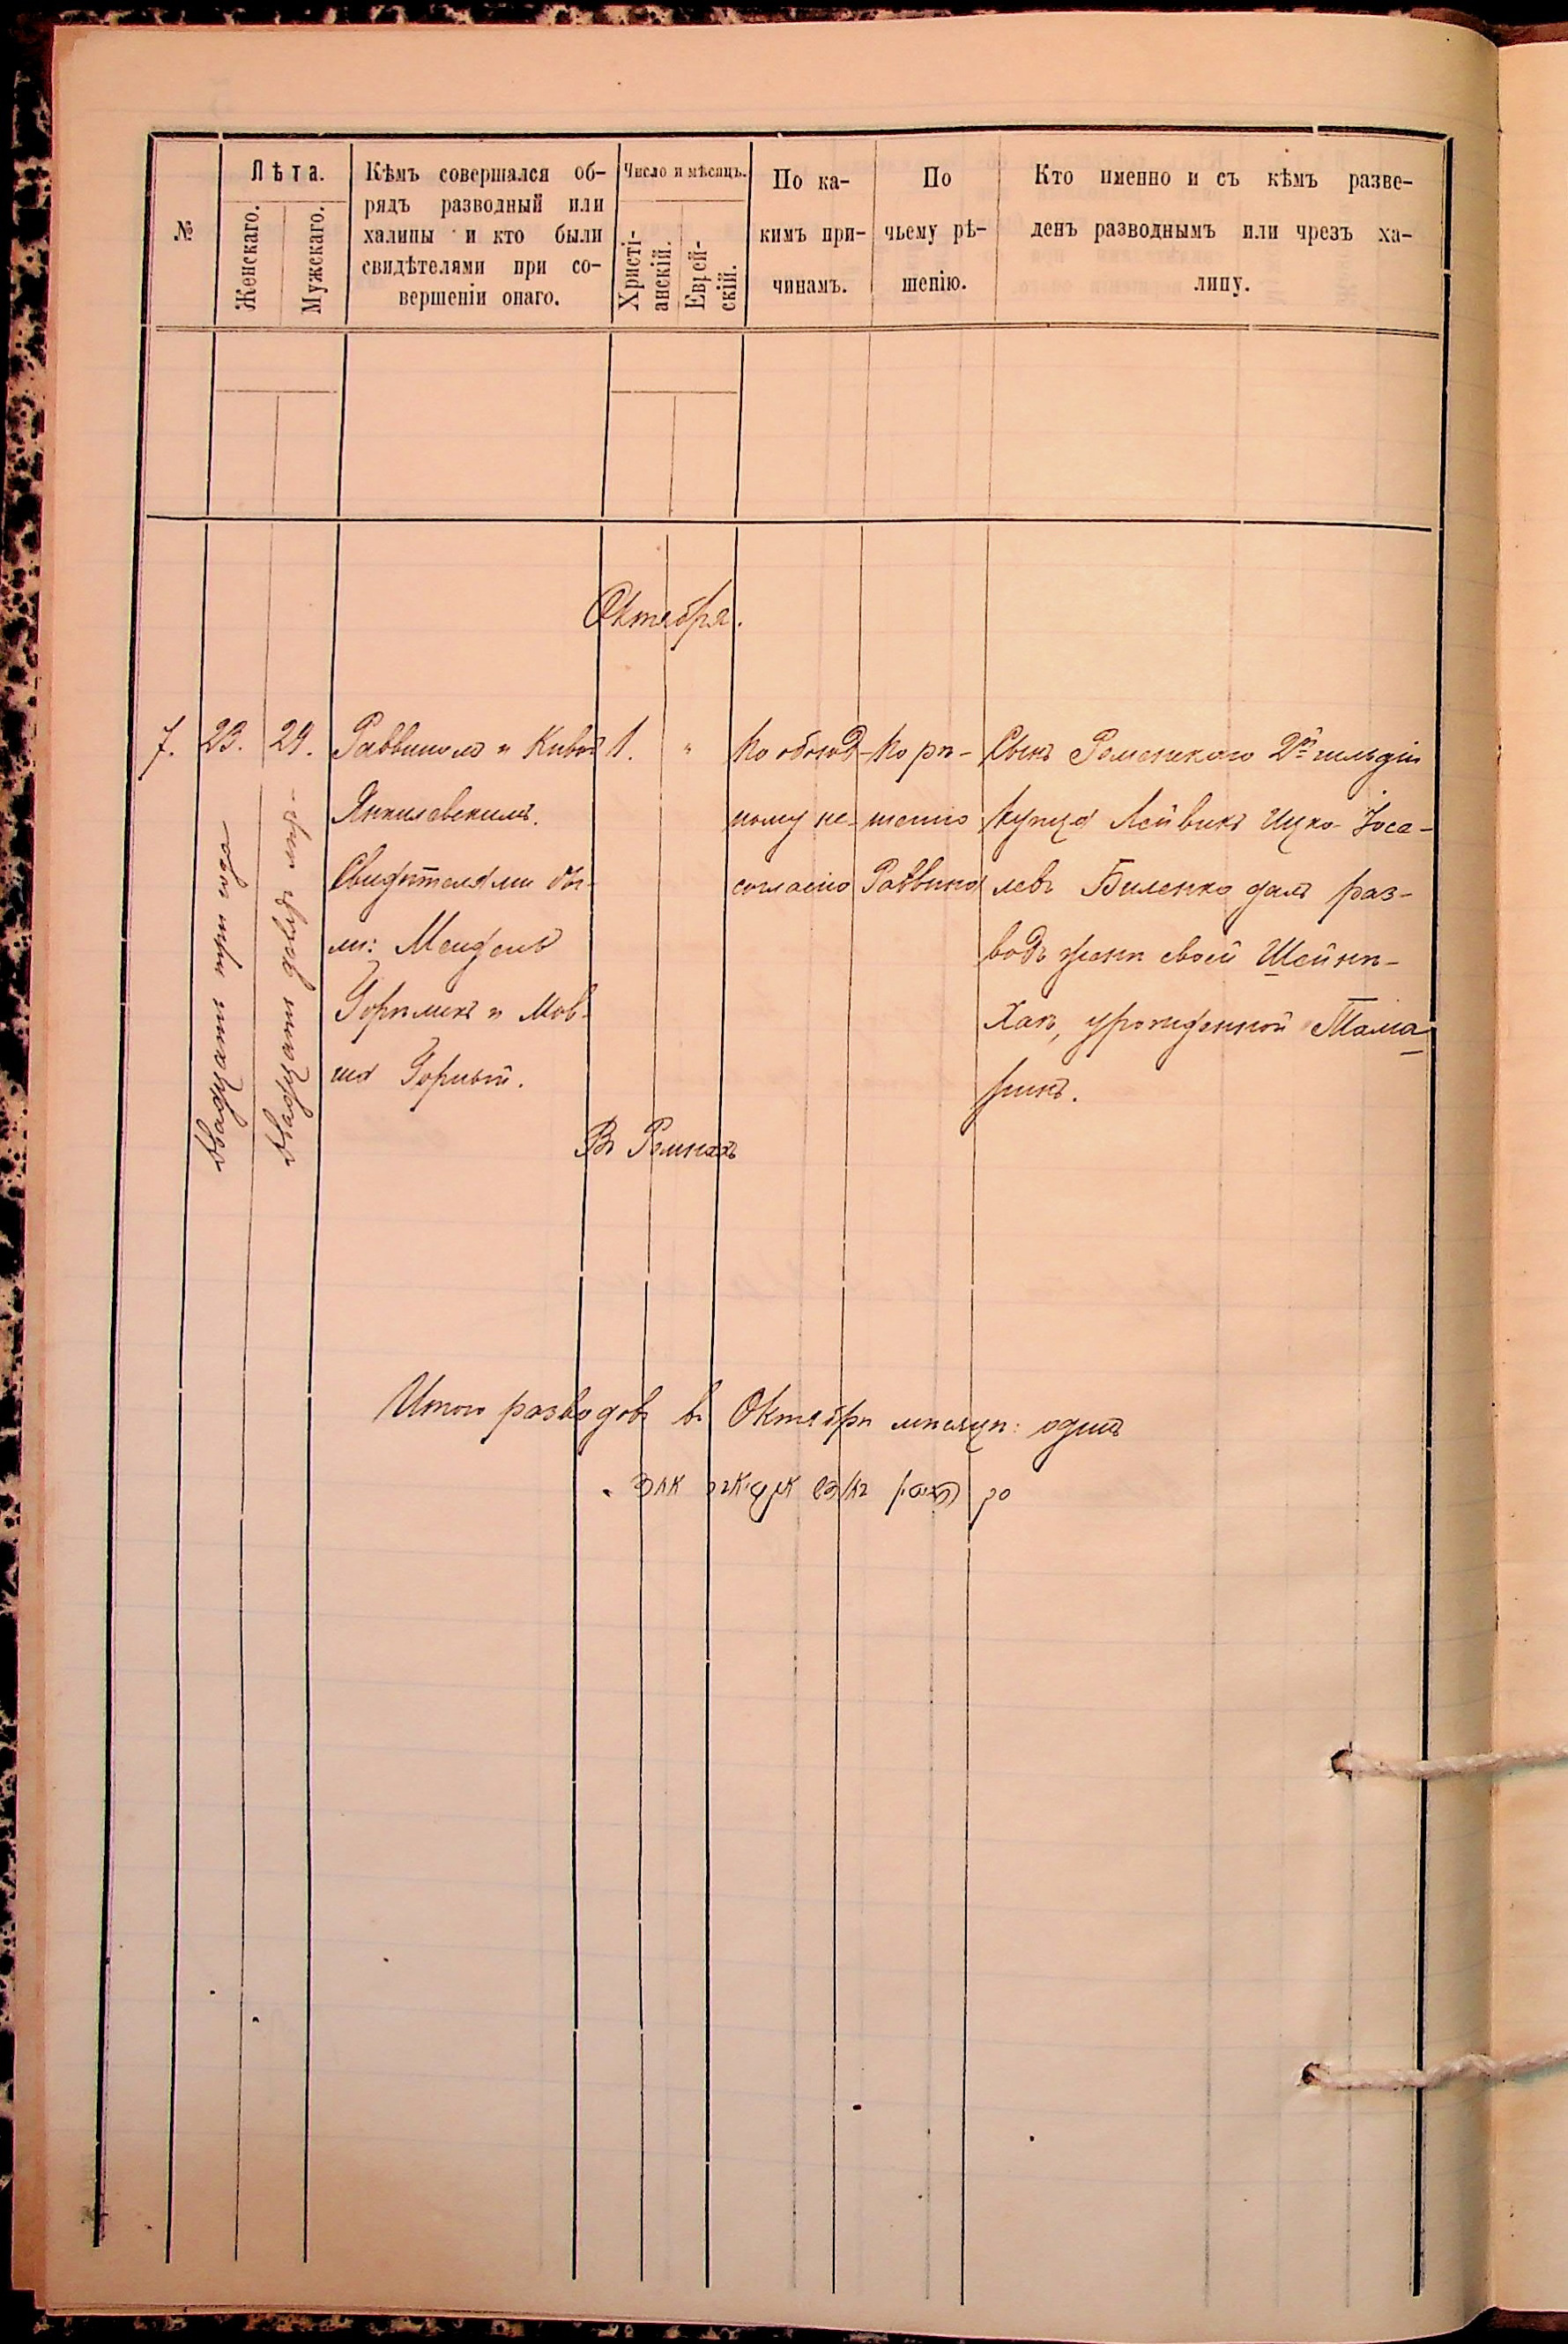 №
Лѣта.
Женскаго.
Мужскаго.
Кѣмъ совершался об-
рядъ разводный или
халицы и кто были
свидѣтелями при со-
вершеніи онаго.
Число и мѣсяцъ.
Христі-
анскій.
Еврей-
скій.
По ка-
кимъ при-
чинамъ.
По
чьему рѣ-
шенію.
Кто именно и съ кѣмъ разве-
денъ разводнымъ или чрезъ ха-
лицу.
Октября.
7.
23.
двадцать три года
29.
двадцать девять
Раввиномъ и
Янкилевскимъ.
Свидѣтелями бы-
ли: Мендель
и Мов-
ша Горный.
1.
"
По обоюд-
ному не-
согласію
По рѣ-
шенію
Раввина
Сынъ Роменскаго 2й гильдіи
купца Лейвикъ Ицко-Іосе-
левъ Биленко далъ раз-
водъ женѣ своей Шейнѣ-
Хаѣ, урожденной Тама-
ркинъ.
Въ Ромнахъ
Итого разводовъ въ Октябрѣ мѣсяцѣ: одинъ